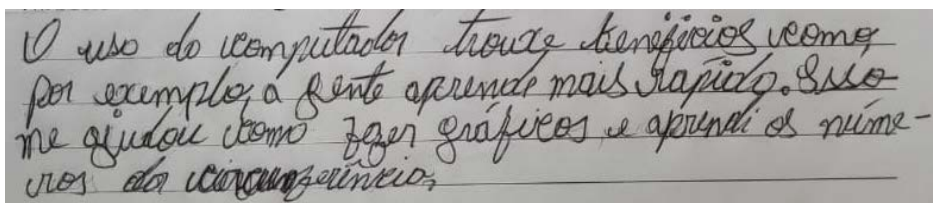 O uso do computador trouxe benefícios como,
por exemplo, a gente aprende mais rápido. Isso
me ajudou como fazer gráficos e aprendi os núme-
ros da circunferência,